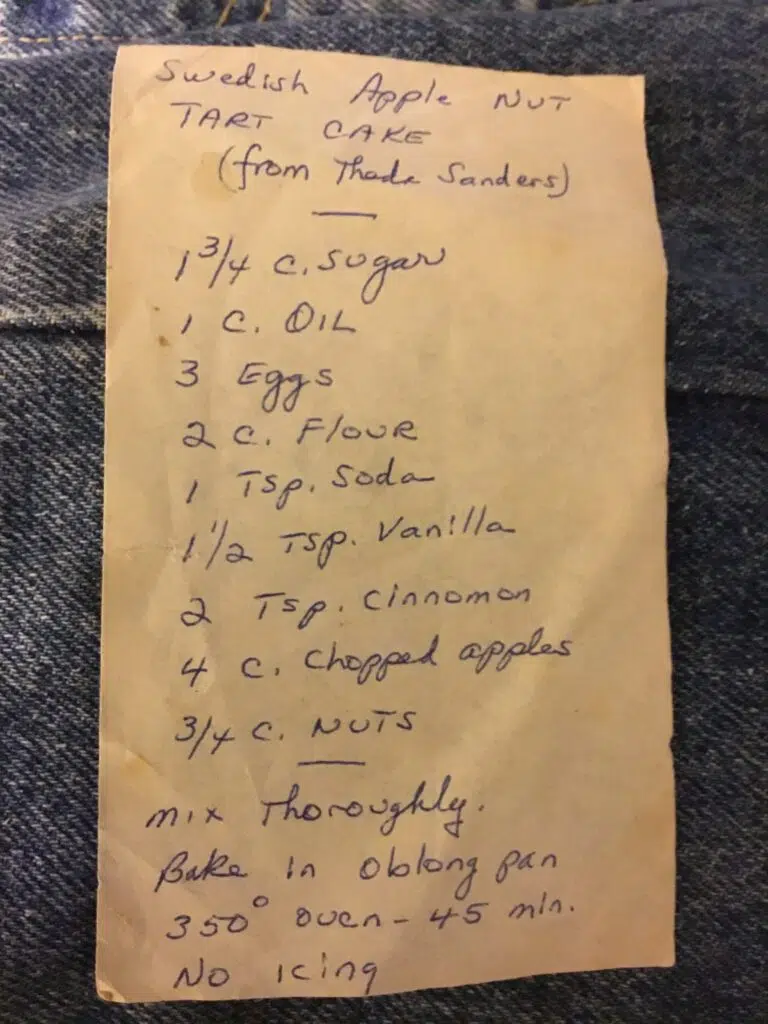 Swedish Apple NUT
TART CAKE
(from Theda Sanders)
1 3/4 C. Sugar
1 C. OIL
3 Eggs
2 C. Flour
1 Tsp. Soda
1 1/2 Tsp. Vanilla
2 Tsp. Cinnomon
4 C. Chopped apples
3/4 C. NUTS
mix Thoroughly.
Bake in oblong pan
350° oven - 45 min.
No icing